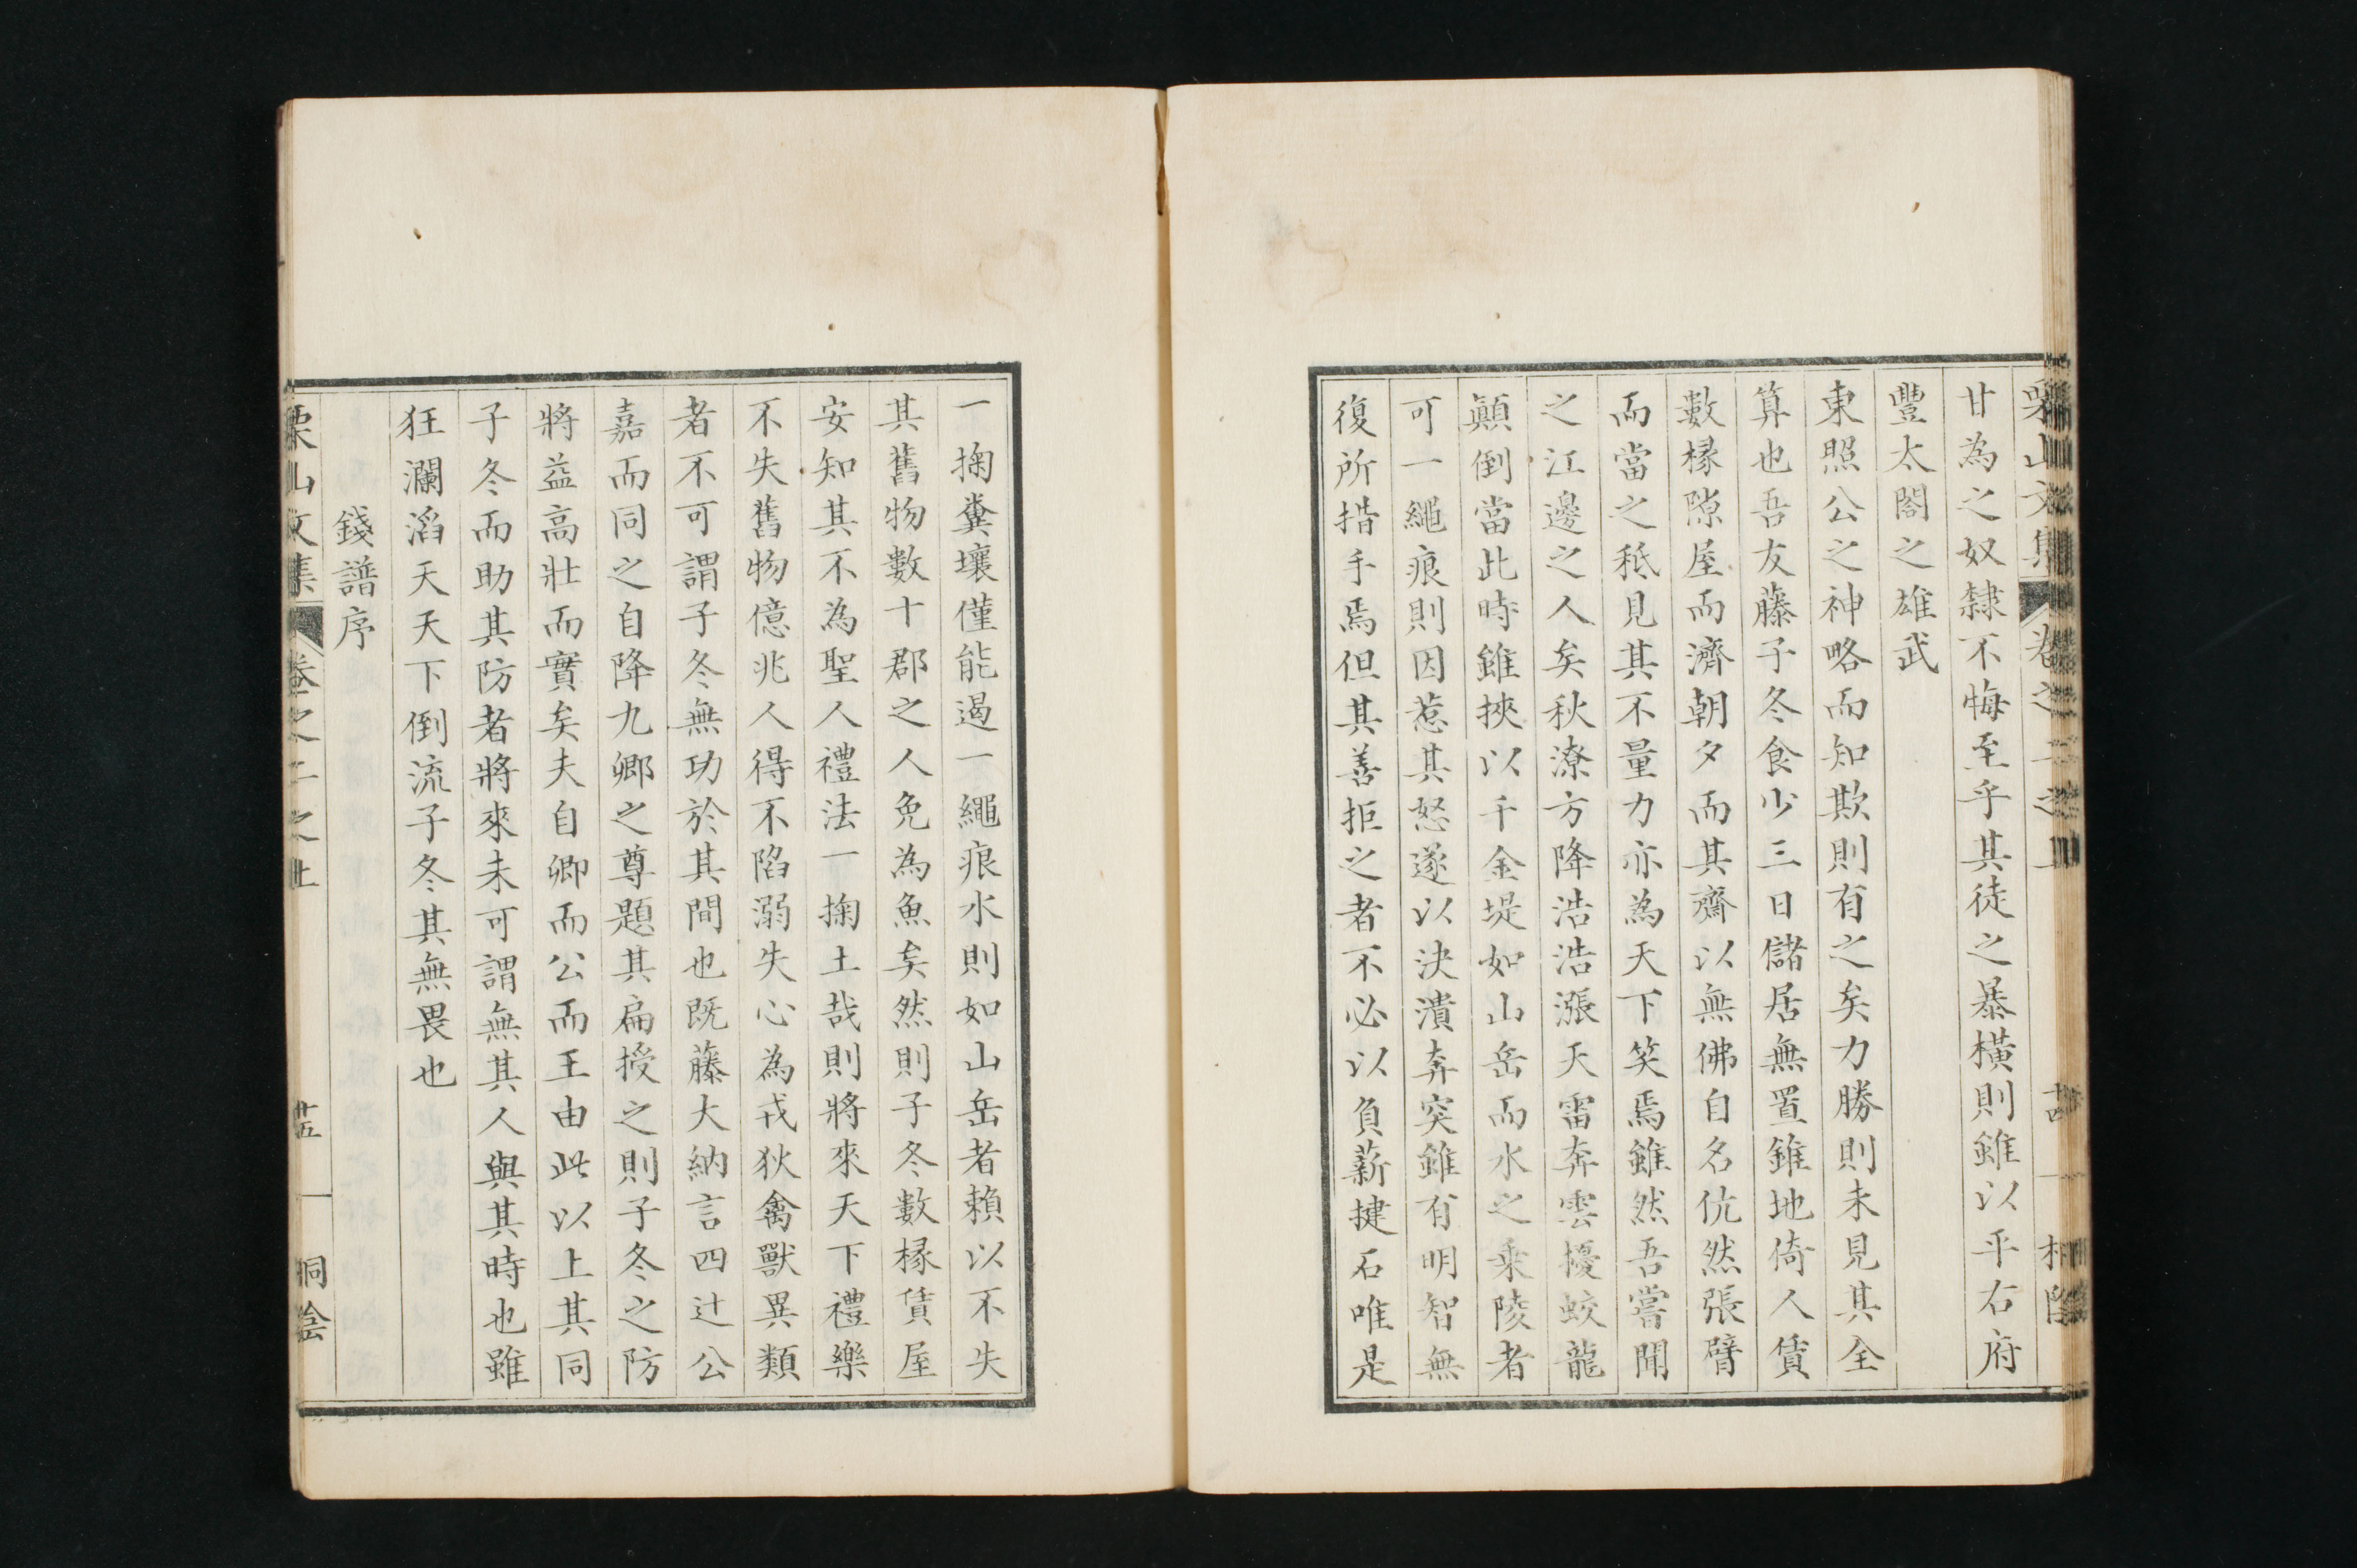 栗山文集 卷之二之上 十四 桐陰
甘為之奴隸不悔至乎其徒之暴橫則雖以平右府
豐太閤之雄武
東照公之神略而知欺則有之矣力勝則未見其全
算也吾友藤子冬食少三日儲居無置錐地倚人賃
數椽隙屋而濟朝夕而其齋以無佛自名伉然張臂
而當之秪見其不量力亦為天下笑焉雖然吾嘗聞
之江邊之人矣秋潦方降浩浩漲天雷奔雲擾蛟龍
顛倒當此時雖挾以千金堤如山岳而水之乘陵者
可一繩痕則因惹其怒遂以決潰奔突雖有明智無
復所措手焉但其善拒之者不必以負薪揵石唯是
一掬糞壤僅能遏一繩痕水則如山岳者賴以不失
其舊物數十郡之人免為魚矣然則子冬數椽賃屋
安知其不為聖人禮法一掬土哉則將來天下禮樂
不失舊物億兆人得不陷溺失心為戎狄禽獸異類
者不可謂子冬無功於其間也既藤大納言四辻公
嘉而同之自降九卿之尊題其扁授之則子冬之防
將益高壯而實矣夫自卿而公而王由此以上其同
子冬而助其防者將來未可謂無其人與其時也雖
狂瀾滔天天下倒流子冬其無畏也
錢譜序
栗山文集 卷之二之上 廿五 桐陰